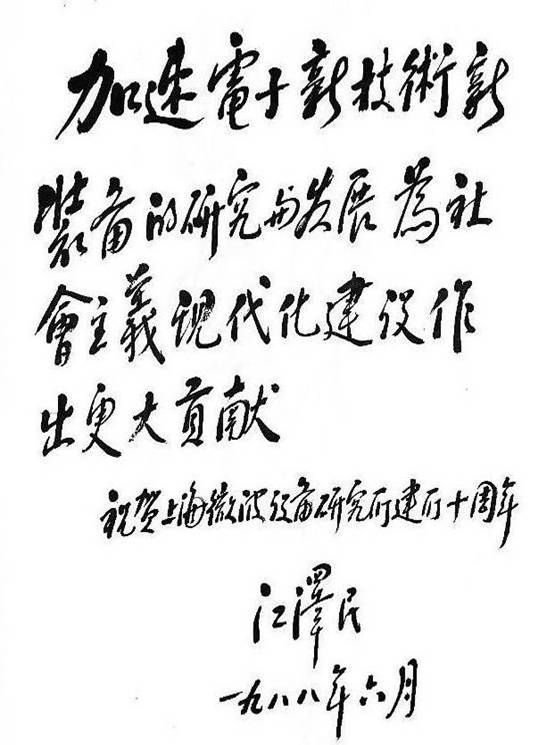 加速電子新技術新
裝备的研究与发展為社
會主義現代化建设作
出更大貢献
祝贺上海微波设备研究所建所十周年
江澤民
一九八八年六月